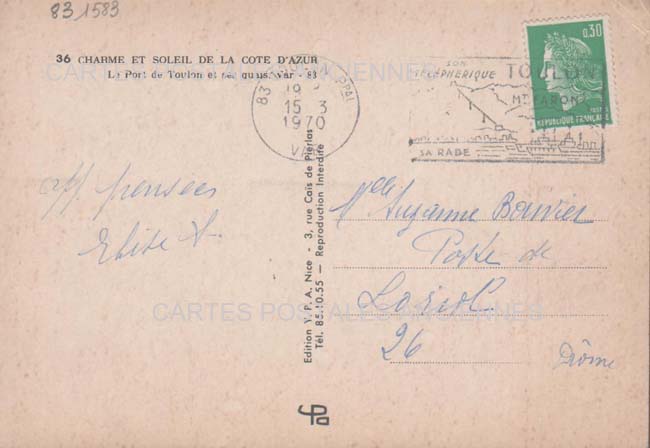 83 1583
36 CHARME ET SOLEIL DE LA COTE D'AZUR
Le Port de Toulon et ses quais. Var - 83
CARTES POSTALES ANCIENNES
83 TOULON PPAL
18
15 3
1970
VAR
SON
TÉLÉPHÉRIQUE TOULON
MT FARON
SA RADE
0,30
POSTES
REPUBLIQUE FRANÇAISE
aff. pensées
Edition Y. P. A. Nice - 3, rue Cais de Pierlas
Tél. 85.10.55 — Reproduction Interdite
Melle Suzanne Bouvier
Poste de
Loriol
26
Drôme
CARTES POSTALES ANCIENNES